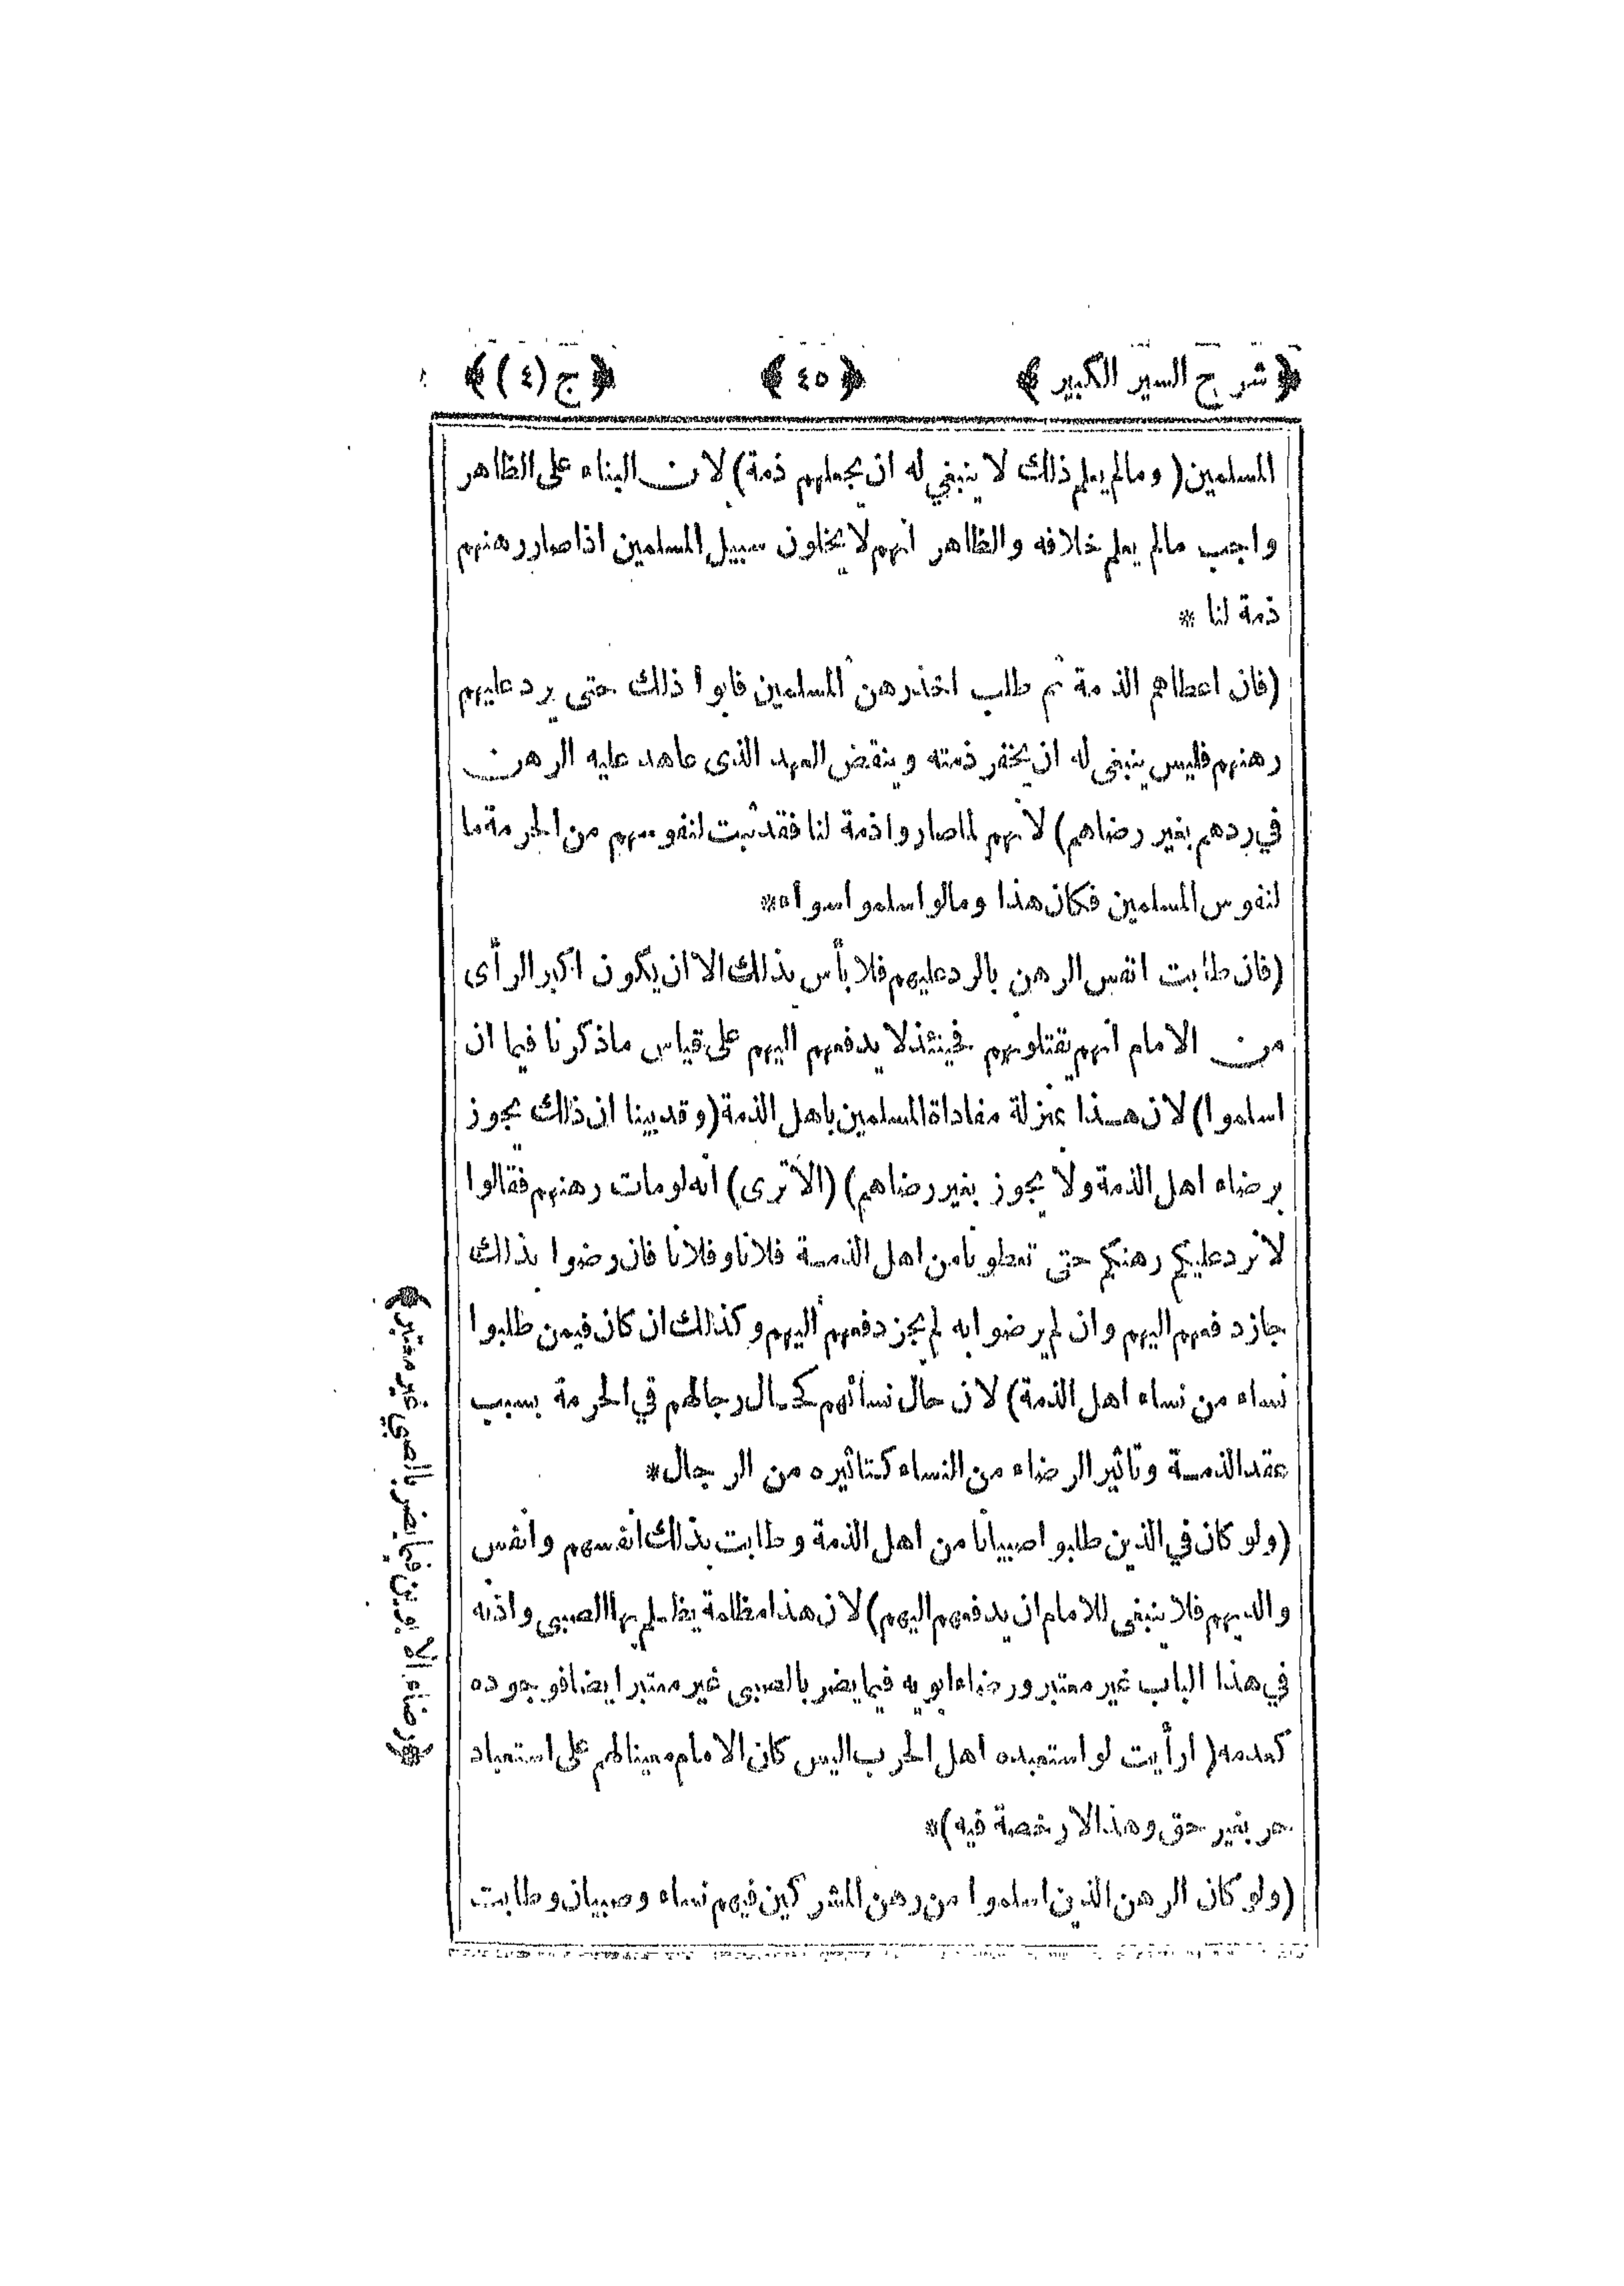 ﴿ شرح السير الكبير ﴾ ﴿ ٤٥ ﴾ ﴿ ج (٤) ﴾
المسلمين ( وما لم يعلم ذلك لا ينبغي له ان يجعلهم ذمة) لان البناء على الظاهر
واجب ما لم يعلم خلافه والظاهر انهم لا يخلون سبيل المسلمين اذا صار رهنهم
ذمة لنا *
(فان اعطاهم الذمة ثم طلب اخذ رهن المسلمين فابوا ذلك حتى يرد عليهم
رهنهم فليس ينبغى له ان يخفر ذمته وينقض العهد الذى عاهد عليه الرهن
في ردهم بغير رضاهم) لانهم لما صاروا ذمة لنا فقد ثبت لنفوسهم من الحرمة ما
لنفوس المسلمين فكان هذا وما لو اسلموا سواء*
(فان طابت انفس الرهن بالرد عليهم فلا بأس بذلك الا ان يكون اكبر الرأى
من الامام انهم يقتلونهم فحينئذ لا يدفعهم اليهم على قياس ما ذكرنا فيما ان
اسلموا) لان هذا بمنزلة مفاداة المسلمين باهل الذمة (وقد بينا ان ذلك يجوز
برضاء اهل الذمة ولا يجوز بغير رضاهم) (الا ترى) انه لو مات رهنهم فقالوا
لا نرد عليكم رهنكم حتى تعطونا من اهل الذمة فلانا وفلانا فان رضوا بذلك
جاز دفعهم اليهم وان لم يرضوا به لم يجز دفعهم اليهم وكذلك ان كان فيمن طلبوا
نساء من نساء اهل الذمة) لان حال نسائهم كحال رجالهم في الحرمة بسبب
عقد الذمة وتاثير الرضاء من النساء كتاثيره من الرجال*
(ولو كان في الذين طلبوا صبيانا من اهل الذمة وطابت بذلك انفسهم وانفس
والديهم فلا ينبغى للامام ان يدفعهم اليهم) لان هذا مظلمة يظلم بها الصبى واذنه
في هذا الباب غير معتبر ورضاء ابويه فيما يضر بالصبى غير معتبر ايضا فوجوده
كعدمه ( ارأيت لو استعبده اهل الحرب اليس كان الامام معينا لهم على استعباد
حر بغير حق وهذا لا رخصة فيه)*
(ولو كان الرهن الذين اسلموا من رهن المشركين فيهم نساء وصبيان وطابت
﴿رضاء الابوين فيما يضر بالصبي غير معتبر﴾